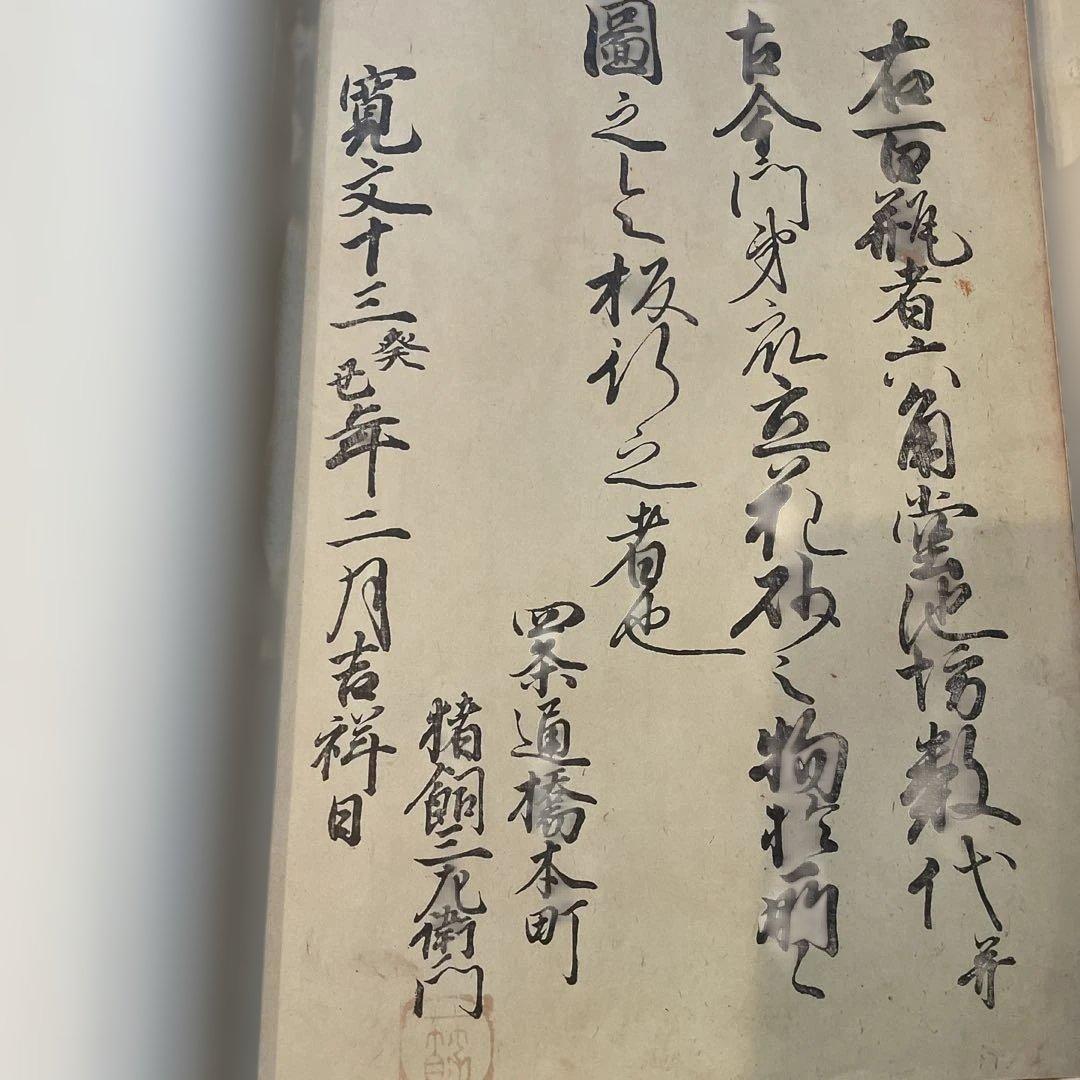 右百瓶者六角堂池坊数代并
古今門弟衆立花砂之物於所々
圖之令板行之者也
四条通橋本町
猪飼三左衛門
寛文十三癸丑年二月吉祥日